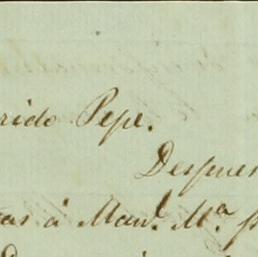 rido Pepe.
Despues
as á Man.l M.a p